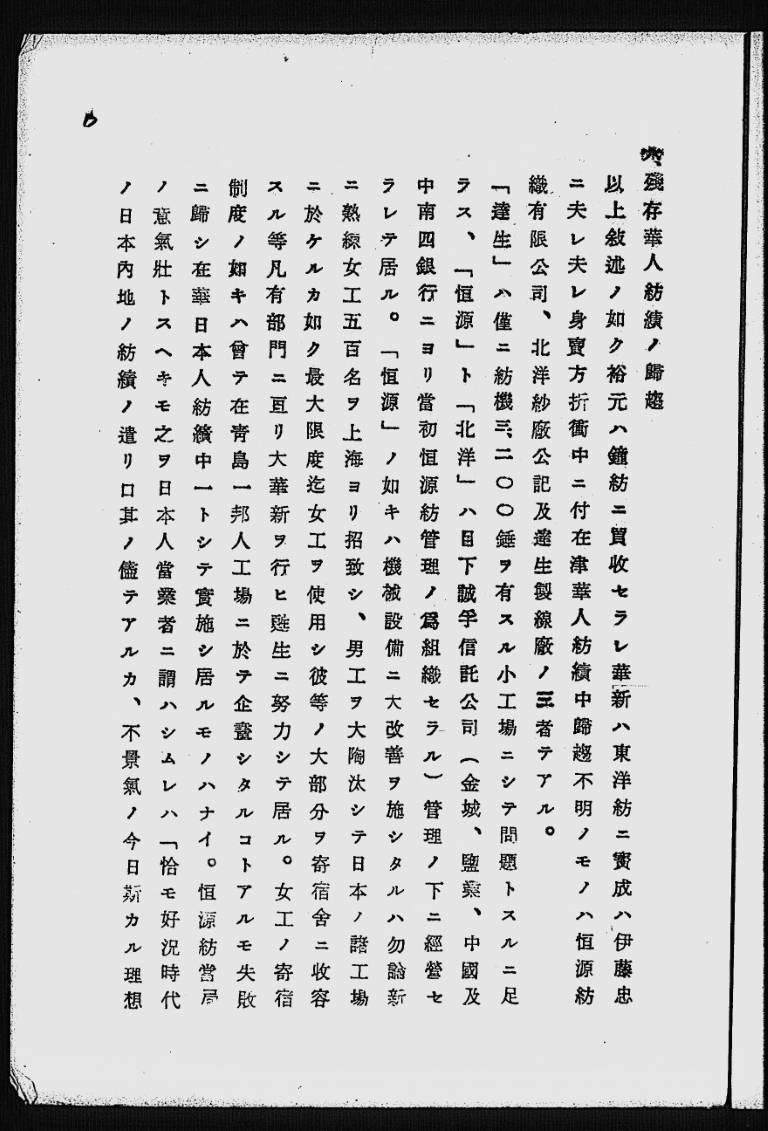 六、殘存華人紡績ノ歸趨
以上敍述ノ如ク裕元ハ鐘紡ニ買收セラレ華新ハ東洋紡ニ寳成ハ伊藤忠
ニ夫レ夫レ身賣方折衝中ニ付在津華人紡績中歸趨不明ノモノハ恒源紡
織有限公司、北洋紗廠公記及達生製線廠ノ三者テアル。
「達生」ハ僅ニ紡機三、二〇〇錘ヲ有スル小工場ニシテ問題トスルニ足
ラス、「恒源」ト「北洋」ハ目下誠孚信託公司（金城、鹽業、中國及
中南四銀行ニヨリ當初恒源紡管理ノ爲組織セラル）管理ノ下ニ經營セ
ラレテ居ル。「恒源」ノ如キハ機械設備ニ大改善ヲ施シタルハ勿論新
ニ熟練女工五百名ヲ上海ヨリ招致シ、男工ヲ大陶汰シテ日本ノ諸工場
ニ於ケルカ如ク最大限度迄女工ヲ使用シ彼等ノ大部分ヲ寄宿舍ニ收容
スル等凡有部門ニ亘リ大華新ヲ行ヒ甦生ニ努力シテ居ル。女工ノ寄宿
制度ノ如キハ曾テ在靑島一邦人工場ニ於テ企畫シタルコトアルモ失敗
ニ歸シ在華日本人紡績中一トシテ實施シ居ルモノハナイ。恒源紡當局
ノ意氣壯トスヘキモ之ヲ日本人當業者ニ謂ハシムレハ「恰モ好況時代
ノ日本內地ノ紡績ノ遣リ口其ノ儘テアルカ、不景氣ノ今日斯カル理想